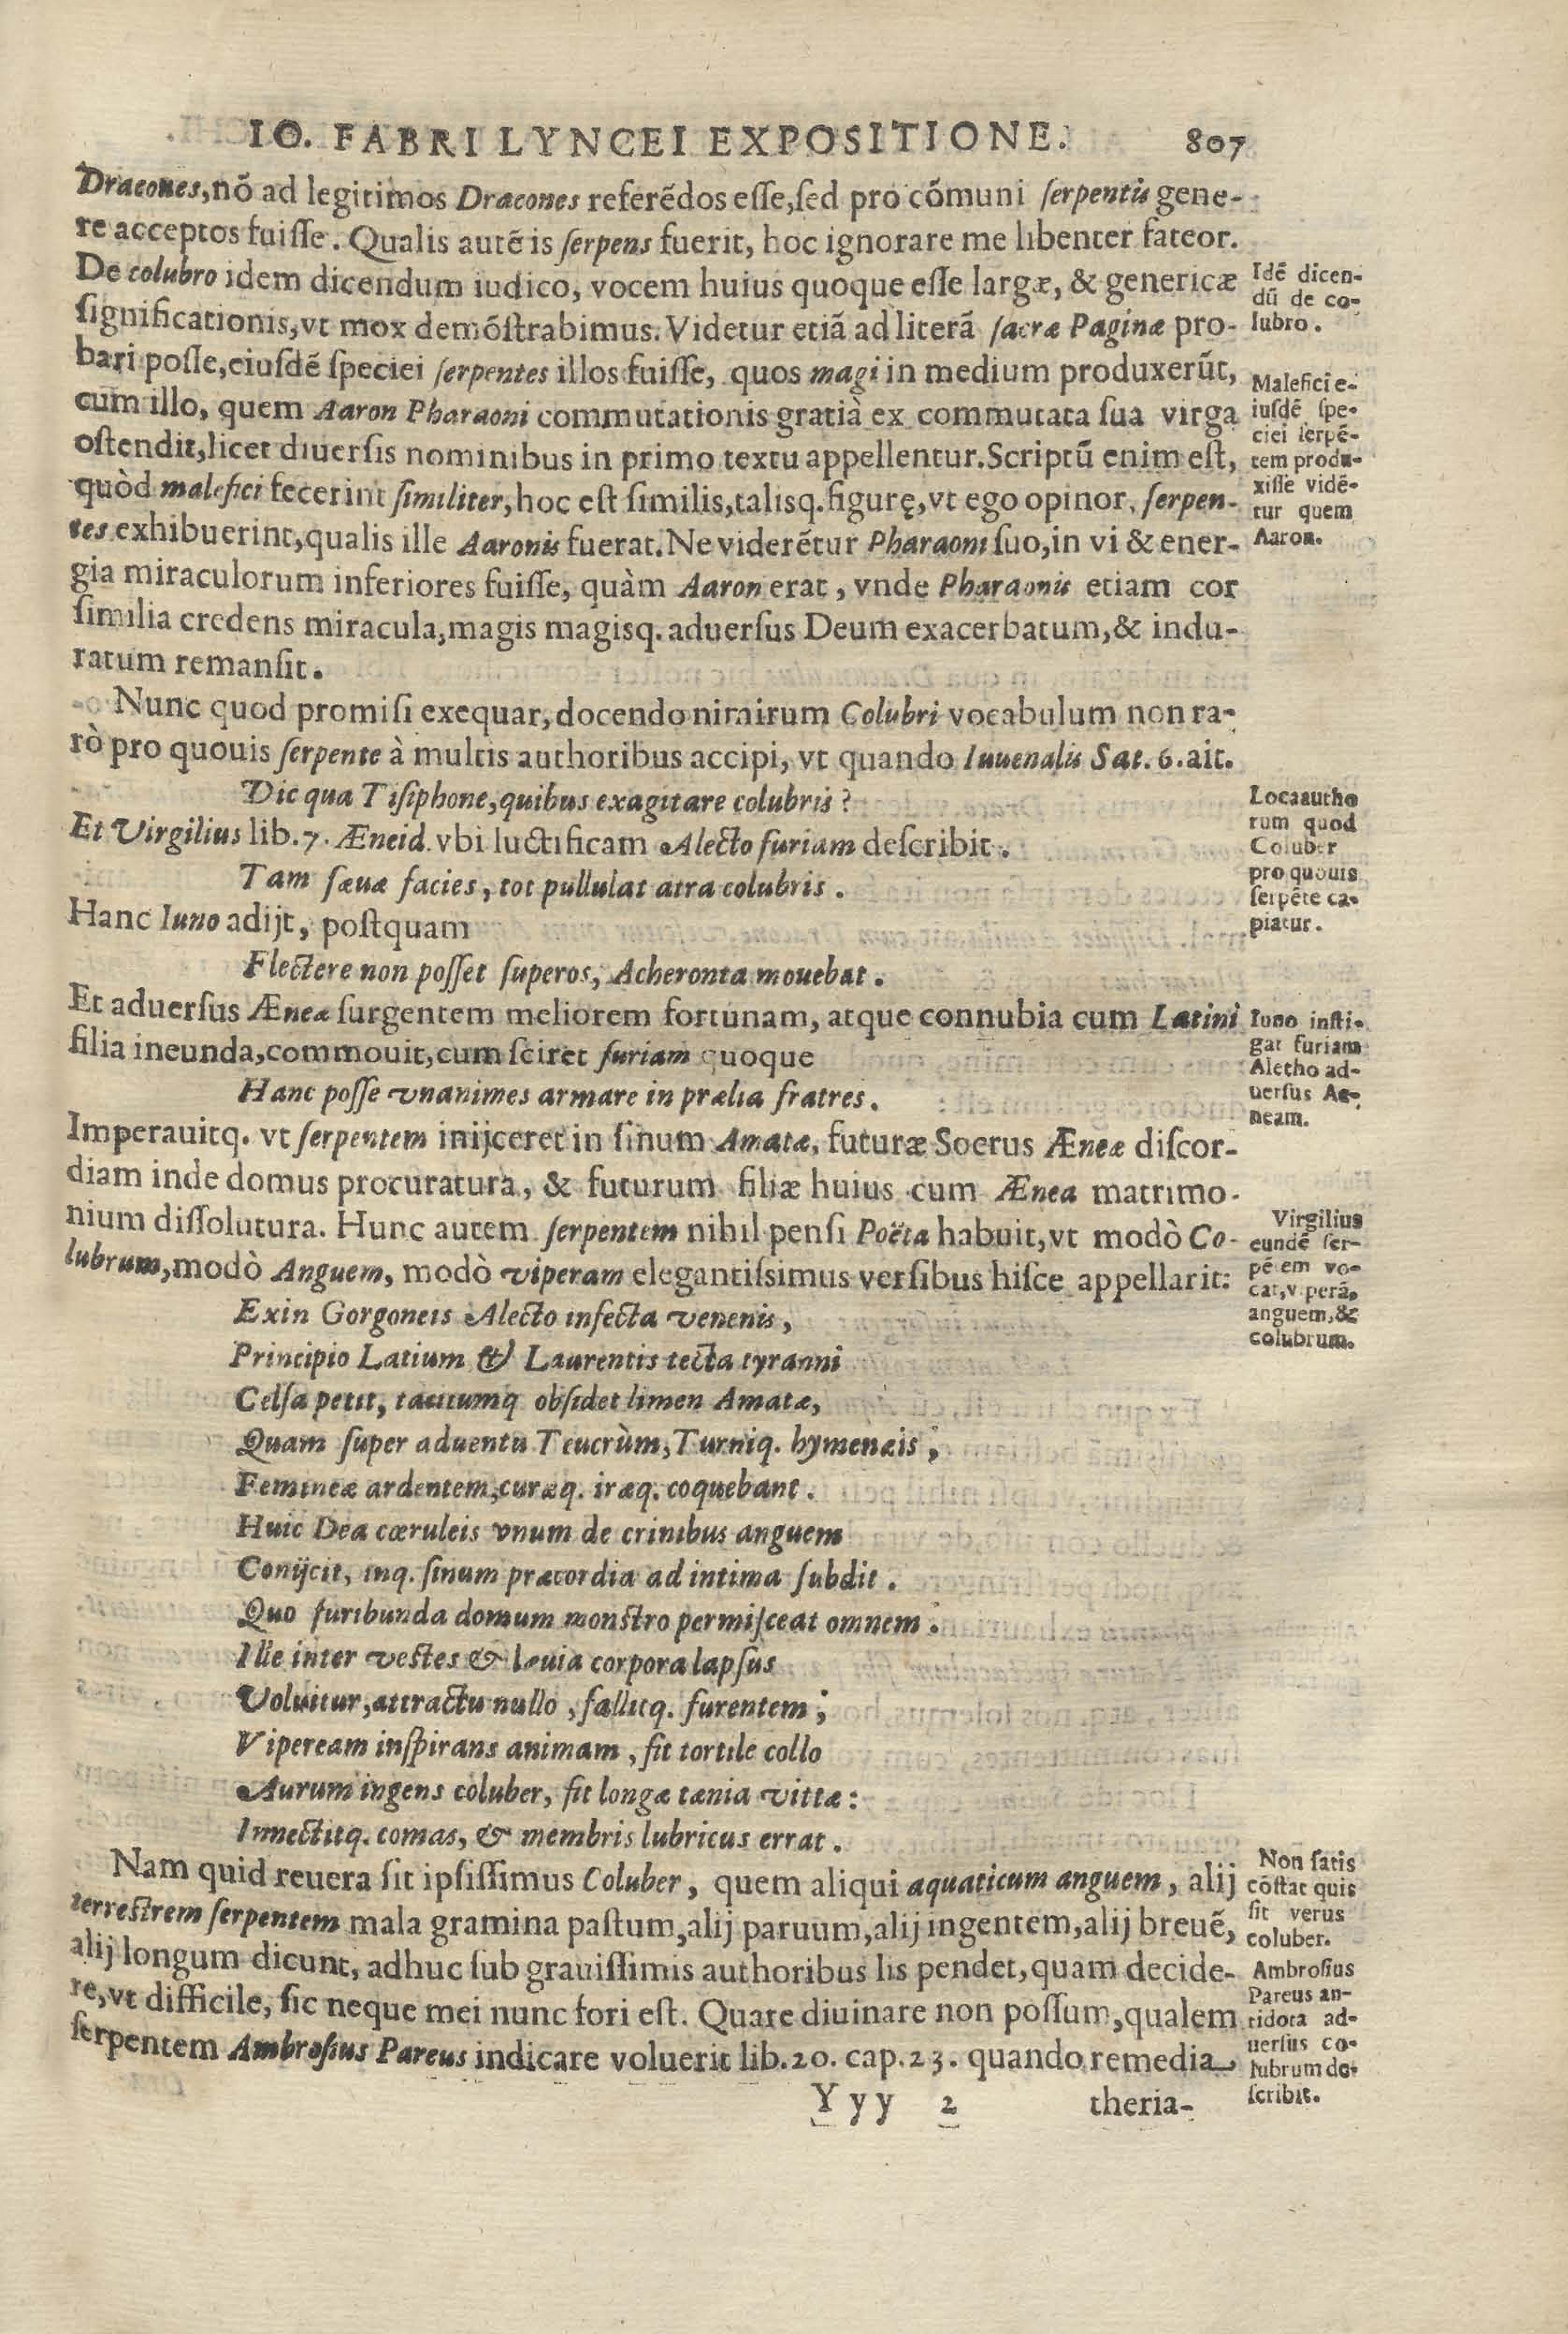 IO. FABRI LYNCEI EXPOSITIONE. 807
Dracones, nõ ad legitimos Dracones referẽdos esse, sed pro cõmuni serpentis gene-
re acceptos fuisse. Qualis autẽ is serpens fuerit, hoc ignorare me libenter fateor.
De colubro idem dicendum iudico, vocem huius quoque esse largæ, & genericæ
significationis, vt mox demõstrabimus. Videtur etiã ad literã sacræ Paginæ pro-
bari posse, eiusdẽ speciei serpentes illos fuisse, quos magi in medium produxerũt,
cum illo, quem Aaron Pharaoni commutationis gratià ex commutata sua virga
ostendit, licet diuersis nominibus in primo textu appellentur. Scriptũ enim est,
quòd malefici fecerint similiter, hoc est similis, talisq. figurę, vt ego opinor, serpen-
tes exhibuerint, qualis ille Aaronis fuerat. Ne viderẽtur Pharaoni suo, in vi & ener-
gia miraculorum inferiores fuisse, quàm Aaron erat, vnde Pharaonis etiam cor
similia credens miracula, magis magisq. aduersus Deum exacerbatum, & indu-
ratum remansit.
Nunc quod promisi exequar, docendo nimirum Colubri vocabulum non ra-
rò pro quouis serpente à multis authoribus accipi, vt quando Iuuenalis Sat. 6. ait.
Dic qua Tisiphone, quibus exagitare colubris?
Et Virgilius lib. 7. Æneid. vbi luctificam Alecto furiam describit.
Tam sæuæ facies, tot pullulat atra colubris.
Hanc Iuno adijt, postquam
Flectere non posset superos, Acheronta mouebat.
Et aduersus Æneæ surgentem meliorem fortunam, atque connubia cum Latini
filia ineunda, commouit, cum sciret furiam quoque
Hanc posse vnanimes armare in prælia fratres.
Imperauitq. vt serpentem inijceret in sinum Amatæ, futuræ Socrus Æneæ discor-
diam inde domus procuratura, & futurum filiæ huius cum Ænea matrimo-
nium dissolutura. Hunc autem serpentem nihil pensi Poëta habuit, vt modò Co-
lubrum, modò Anguem, modò viperam elegantissimus versibus hisce appellarit:
Exin Gorgoneis Alecto infecta venenis,
Principio Latium & Laurentis tecta tyranni
Celsa petit, tacitumq obsidet limen Amatæ,
Quam super aduentu Teucrùm, Turniq. hymenæis;
Femineæ ardentem, curæq. iræq. coquebant.
Huic Dea cæruleis vnum de crinibus anguem
Conijcit, inq. sinum præcordia ad intima subdit.
Quo furibunda domum monstro permisceat omnem:
Ille inter vestes & læuia corpora lapsus
Voluitur, attractu nullo, fallitq. furentem;
Vipeream inspirans animam, fit tortile collo
Aurum ingens coluber, fit longæ tænia vittæ:
Innectitq. comas, & membris lubricus errat.
Nam quid reuera sit ipsissimus Coluber, quem aliqui aquaticum anguem, alij
terrestrem serpentem mala gramina pastum, alij paruum, alij ingentem, alij breuẽ,
alij longum dicunt, adhuc sub grauissimis authoribus lis pendet, quam decide-
re, vt difficile, sic neque mei nunc fori est. Quare diuinare non possum, qualem
serpentem Ambrosius Pareus indicare voluerit lib. 20. cap. 23. quando remedia
Yyy 2 theria-
Idẽ dicen-
dũ de co-
lubro.
Malefici e-
iusdẽ spe-
ciei serpẽ-
tem produ-
xisse vidẽ-
tur quem
Aaron.
Loca autho
rum quod
Coluber
pro quouis
serpẽte ca-
piatur.
Iuno insti-
gat furiam
Aletho ad-
uersus Ae-
neam.
Virgilius
eundẽ ser-
pẽem vo-
cat, viperã,
anguem, &
colubrum.
Non satis
cõstat quis
sit verus
coluber.
Ambrosius
Pareus an-
tidota ad-
uersus co-
lubrum de-
scribit.